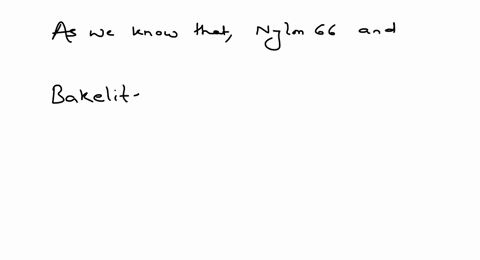 As we know that, Nylon 66 and
Bakelit-